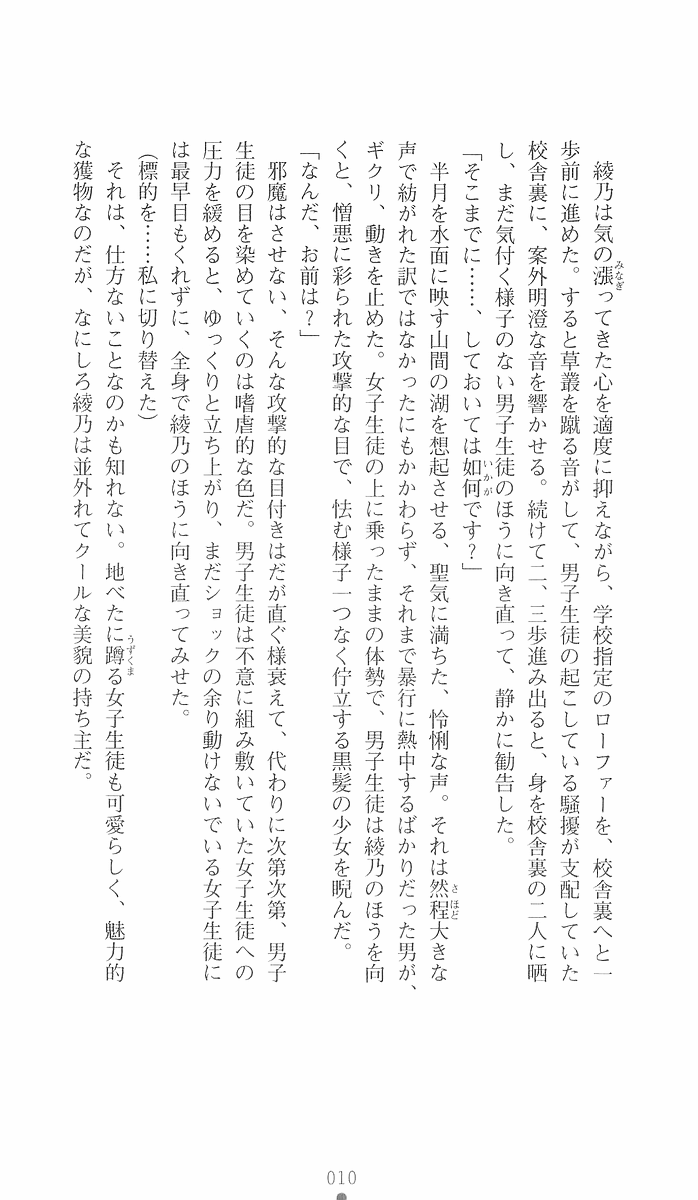 綾乃は気の漲ってきた心を適度に抑えながら、学校指定のローファーを、校舎裏へと一
歩前に進めた。すると草叢を蹴る音がして、男子生徒の起こしている騒擾が支配していた
校舎裏に、案外明澄な音を響かせる。続けて二、三歩進み出ると、身を校舎裏の二人に晒
し、まだ気付く様子のない男子生徒のほうに向き直って、静かに勧告した。
「そこまでに……、しておいては如何です？」
　半月を水面に映す山間の湖を想起させる、聖気に満ちた、怜悧な声。それは然程大きな
声で紡がれた訳ではなかったにもかかわらず、それまで暴行に熱中するばかりだった男が、
ギクリ、動きを止めた。女子生徒の上に乗ったままの体勢で、男子生徒は綾乃のほうを向
くと、憎悪に彩られた攻撃的な目で、怯む様子一つなく佇立する黒髪の少女を睨んだ。
「なんだ、お前は？」
　邪魔はさせない、そんな攻撃的な目付きはだが直ぐ様衰えて、代わりに次第次第、男子
生徒の目を染めていくのは嗜虐的な色だ。男子生徒は不意に組み敷いていた女子生徒への
圧力を緩めると、ゆっくりと立ち上がり、まだショックの余り動けないでいる女子生徒に
は最早目もくれずに、全身で綾乃のほうに向き直ってみせた。
（標的を……私に切り替えた）
　それは、仕方ないことなのかも知れない。地べたに蹲る女子生徒も可愛らしく、魅力的
な獲物なのだが、なにしろ綾乃は並外れてクールな美貌の持ち主だ。
みなぎ
いかが
さほど
うずくま
010